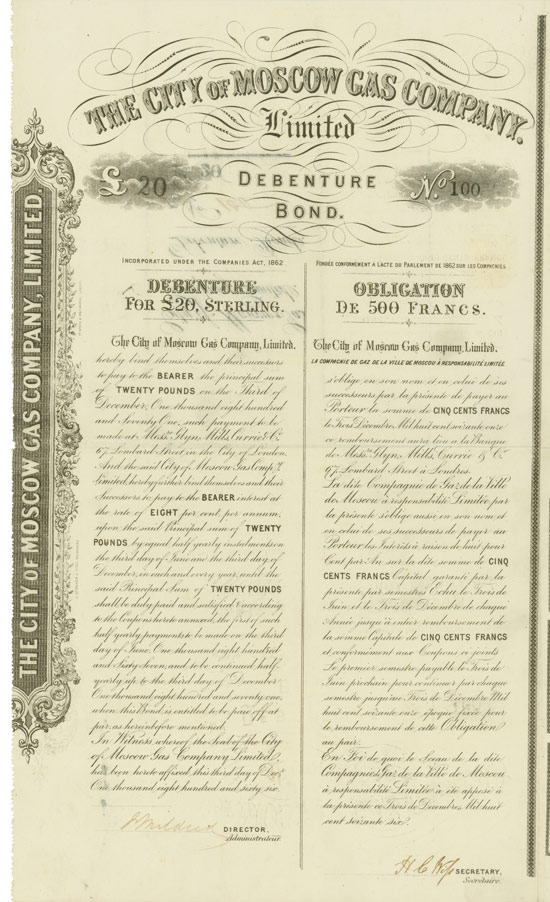 THE CITY OF MOSCOW GAS COMPANY.
Limited
£ 20
DEBENTURE
BOND.
No. 100
THE CITY OF MOSCOW GAS COMPANY, LIMITED.
INCORPORATED UNDER THE COMPANIES ACT, 1862
DEBENTURE
FOR £20, STERLING.
The City of Moscow Gas Company, Limited,
hereby bind themselves and their successors
to pay to the BEARER the principal sum
of TWENTY POUNDS on the Third of
December, One thousand eight hundred
and Seventy One, such payment to be
made at Messrs. Glyn, Mills, Currie & Co.
67, Lombard Street in the City of London.
And the said City of Moscow Gas Compy.
Limited hereby further bind themselves and their
Successors to pay to the BEARER interest at
the rate of EIGHT per cent, per annum,
upon the said Principal sum of TWENTY
POUNDS by equal half yearly instalments on
the third day of June and the third day of
December, in each and every year, until the
said Principal Sum of TWENTY POUNDS
shall be duly paid and satisfied & according
to the Coupons hereto annexed, the first of such
half yearly payments to be made on the third
day of June, One thousand eight hundred
and Sixty seven, and to be continued half
yearly up to the third day of December
One thousand, eight hundred and seventy one,
when this Bond is entitled to be paid off at
par, as hereinbefore mentioned.
In Witness whereof the Seal of the City
of Moscow Gas Company Limited,
has been hereto affixed, this third day of Decr.
One thousand eight hundred and sixty six.
DIRECTOR,
Administrateur.
FONDÉE CONFORMEMENT A L'ACTE DU PARLEMENT DE 1862 SUR LES COMPAGNIES.
OBLIGATION
DE 500 FRANCS.
The City of Moscow Gas Company, Limited,
LA COMPAGNIE DE GAZ DE LA VILLE DE MOSCOU À RESPONSABILITÉ LIMITÉE
s'oblige en son nom et en celui de ses
successeurs par la présente de payer au
Porteur la somme de CINQ CENTS FRANCS
le Trois Décembre Mil huit cent soixante onze
ce remboursement aura lieu à la Banque
de Messrs. Glyn, Mills, Currie & Co.
67, Lombard Street à Londres.
La dite Compagnie de Gaz de la Ville
de Moscou à responsabilité Limitée par
la présente s'oblige aussi en son nom et
en celui de ses successeurs de payer au
Porteur les Intérêts à raison de huit pour
Cent par An sur la dite somme de CINQ
CENTS FRANCS Capital garanti par la
présente par semestres Echu le Trois de
Juin et le Trois de Décembre de chaque
Année jusqu'à entier remboursement de
la somme Capitale de CINQ CENTS FRANCS
et conformément aux Coupons ci joints
Le premier semestre payable le Trois de
Juin prochain pour continuer par chaque
semestre jusqu'au Trois de Décembre Mil
huit cent soixante onze époque fixée pour
le remboursement de cette Obligation
au pair.
En Foi de quoi le Sceau de la dite
Compagnie de Gaz de la Ville de Moscou
à responsabilité Limitée à été apposé à
la présente ce Trois de Décembre, Mil huit
cent soixante six.
SECRETARY,
Secrétaire.